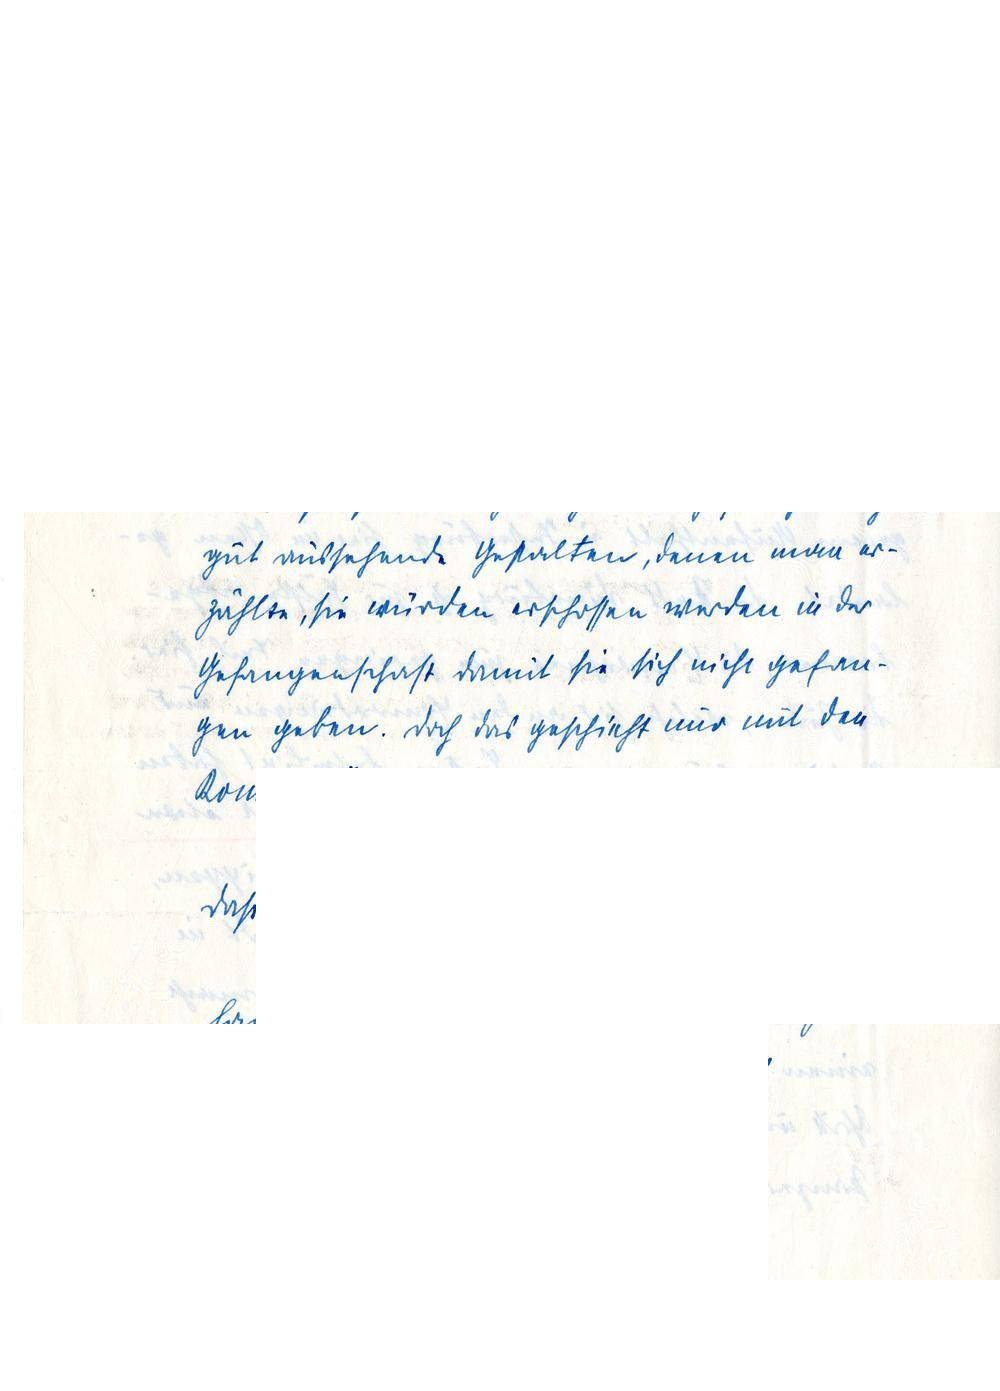 gut aussehende Gestalten, denen man er-
zählte, sie würden erschossen werden in der
Gefangenschaft damit sie sich nicht gefan-
gen geben. Doch das geschieht nur mit den